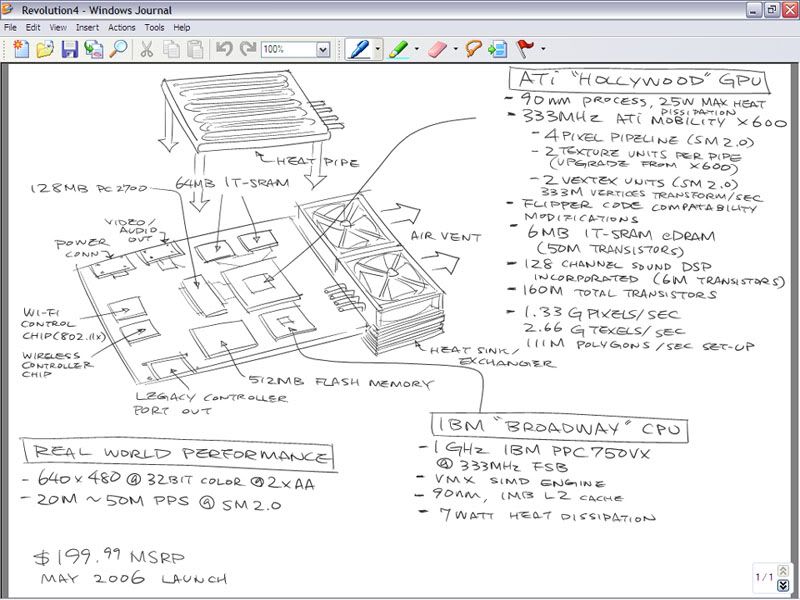 Revolution4 - Windows Journal
File Edit View Insert Actions Tools Help
100%
HEAT PIPE
128MB PC2700
64MB 1T-SRAM
VIDEO/
AUDIO
OUT
POWER
CONN
AIR VENT
WI-FI
CONTROL
CHIP(802.11x)
WIRELESS
CONTROLLER
CHIP
HEAT SINK/
EXCHANGER
512MB FLASH MEMORY
LEGACY CONTROLLER
PORT OUT
ATi "HOLLYWOOD" GPU
- 90nm PROCESS, 25W MAX HEAT
DISSIPATION
- 333MHz ATi MOBILITY X600
- 4 PIXEL PIPELINE (SM 2.0)
- 2 TEXTURE UNITS PER PIPE
(UPGRADE FROM X600)
- 2 VEXTEX UNITS (SM 2.0)
333M VERTICES TRANSFORM/SEC
- FLIPPER CODE COMPATABILITY
MODIFICATIONS
- 6MB 1T-SRAM eDRAM
(50M TRANSISTORS)
- 128 CHANNEL SOUND DSP
INCORPORATED (6M TRANSISTORS)
- 160M TOTAL TRANSISTORS
- 1.33 GPIXELS/SEC
2.66 GTEXELS/SEC
111M POLYGONS/SEC SET-UP
IBM "BROADWAY" CPU
- 1GHz IBM PPC750VX
@ 333MHz FSB
- VMX SIMD ENGINE
- 90nm, 1MB L2 CACHE
- 7 WATT HEAT DISSIPATION
REAL WORLD PERFORMANCE
- 640x480 @ 32BIT COLOR @ 2xAA
- 20M ~ 50M PPS @ SM 2.0
$199.99 MSRP
MAY 2006 LAUNCH
1/1